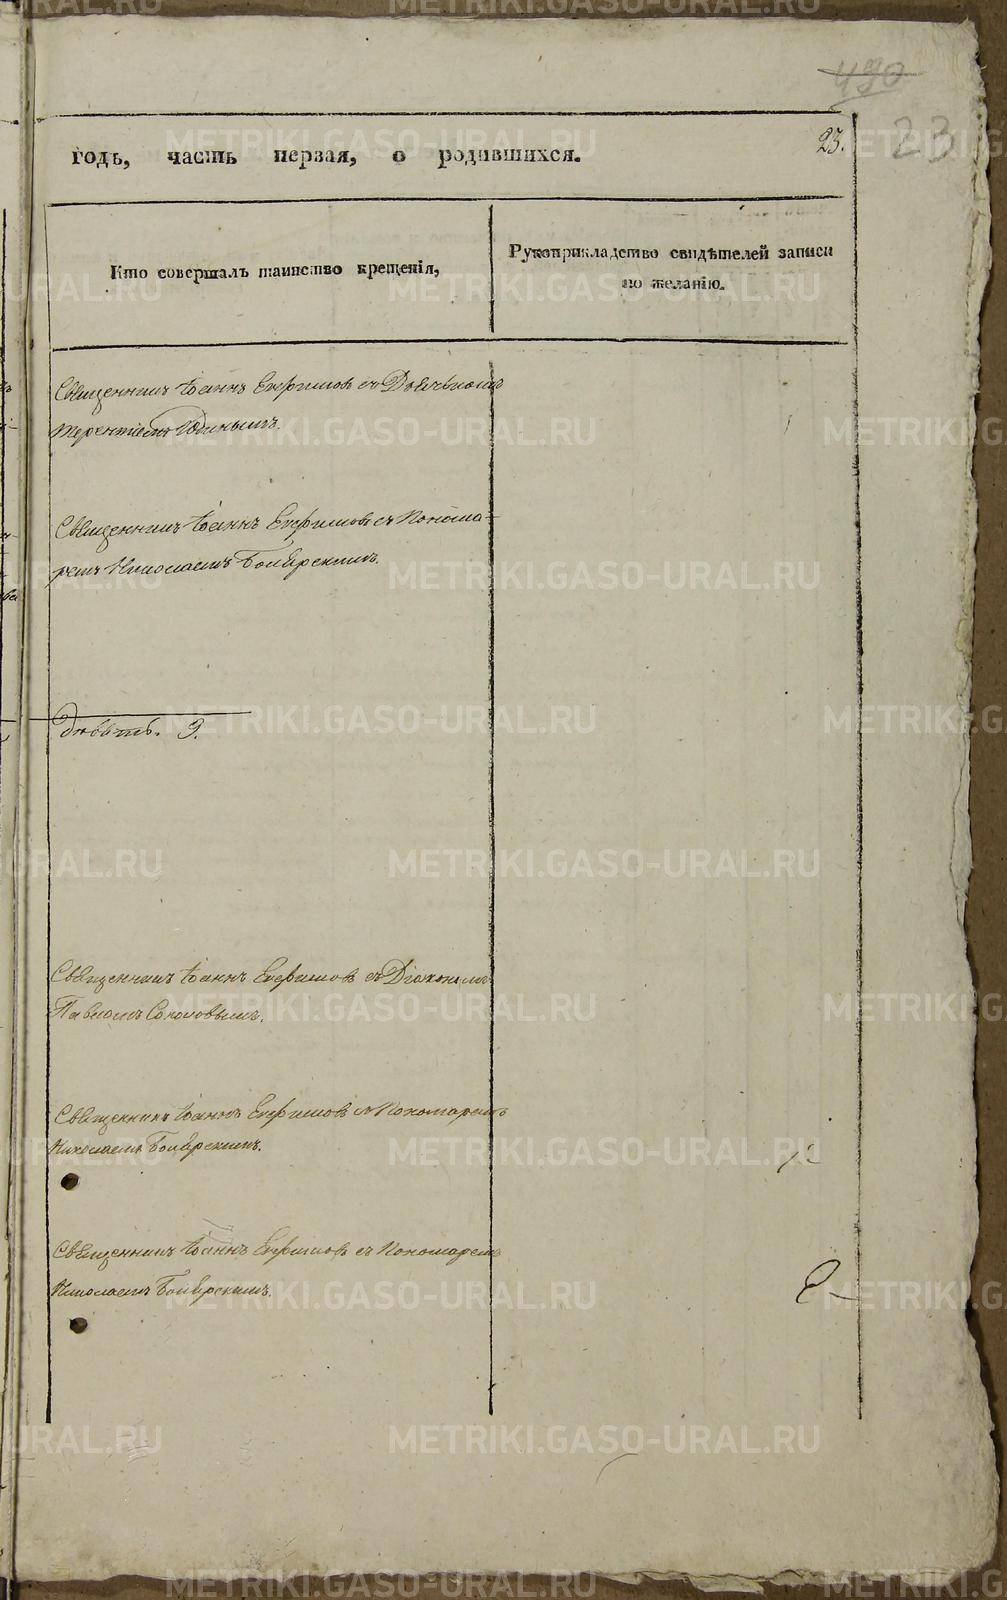 490
23.
23
годъ, часть первая, о родившихся.
Кто совершалъ таинство крещенія,
Рукоприкладство свидѣтелей записи
по желанію.
Священникъ Іоаннъ Ефимовъ съ Дьячькомъ
Терентіемъ Юдинымъ.
Священникъ Іоаннъ Ефимовъ съ Понома-
ремъ Николаемъ
девять. 9.
Священникъ Іоаннъ Ефимовъ съ Діакономъ
Павломъ Соколовымъ.
Священникъ Іоаннъ Ефимовъ съ Пономаремъ
Николаемъ
Священникъ Іоаннъ Ефимовъ съ Пономаремъ
Николаемъ
METRIKI.GASO-URAL.RU